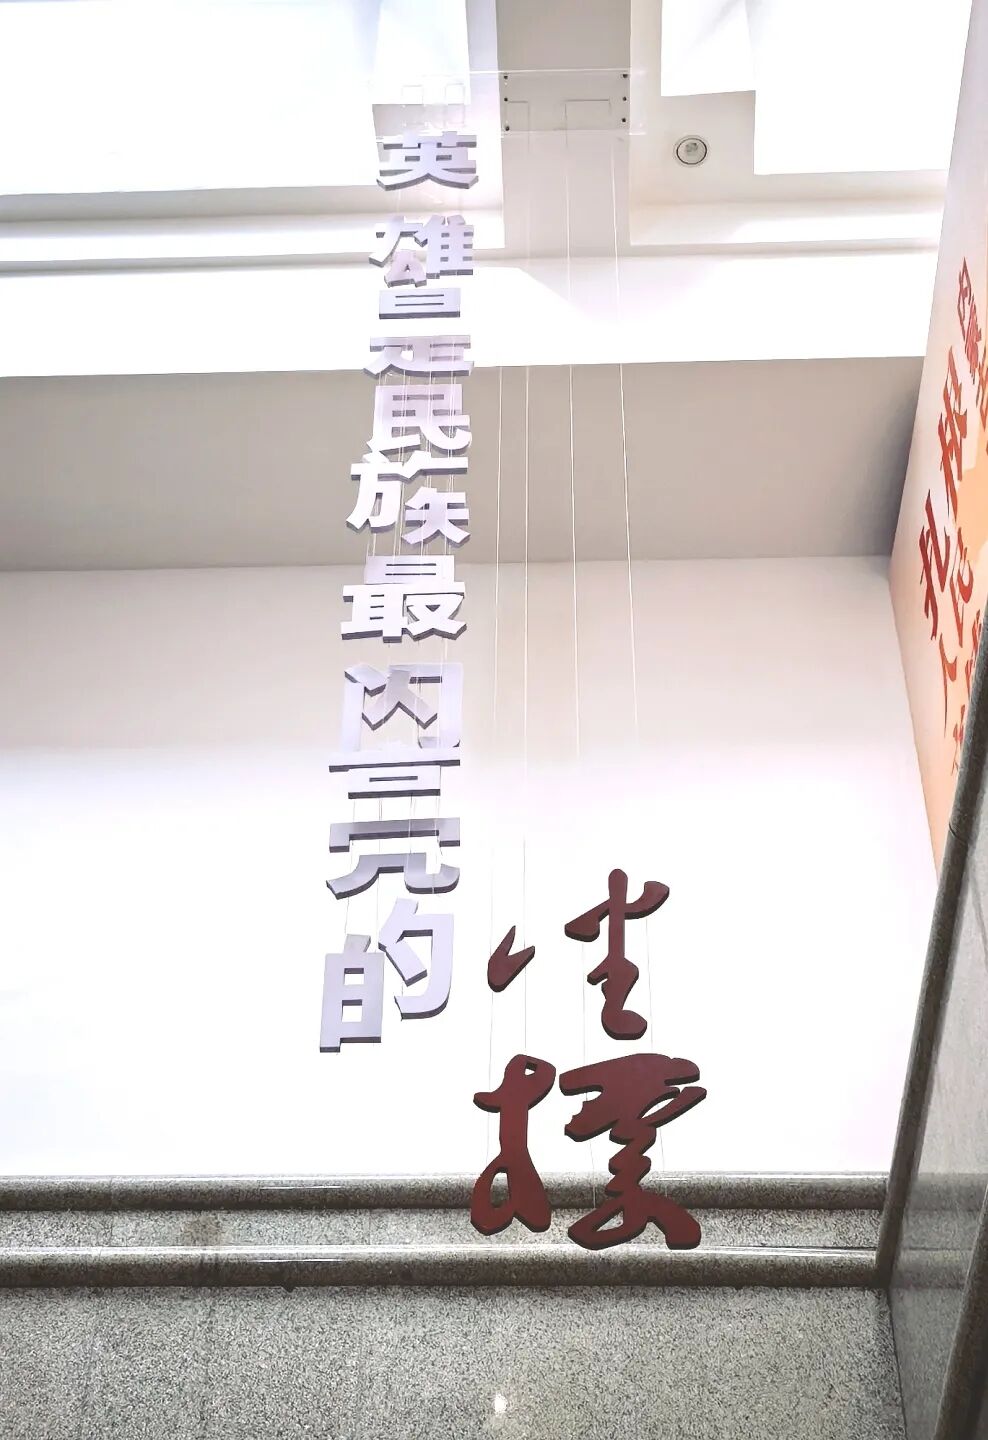 英雄是民族最闪亮的
坐标